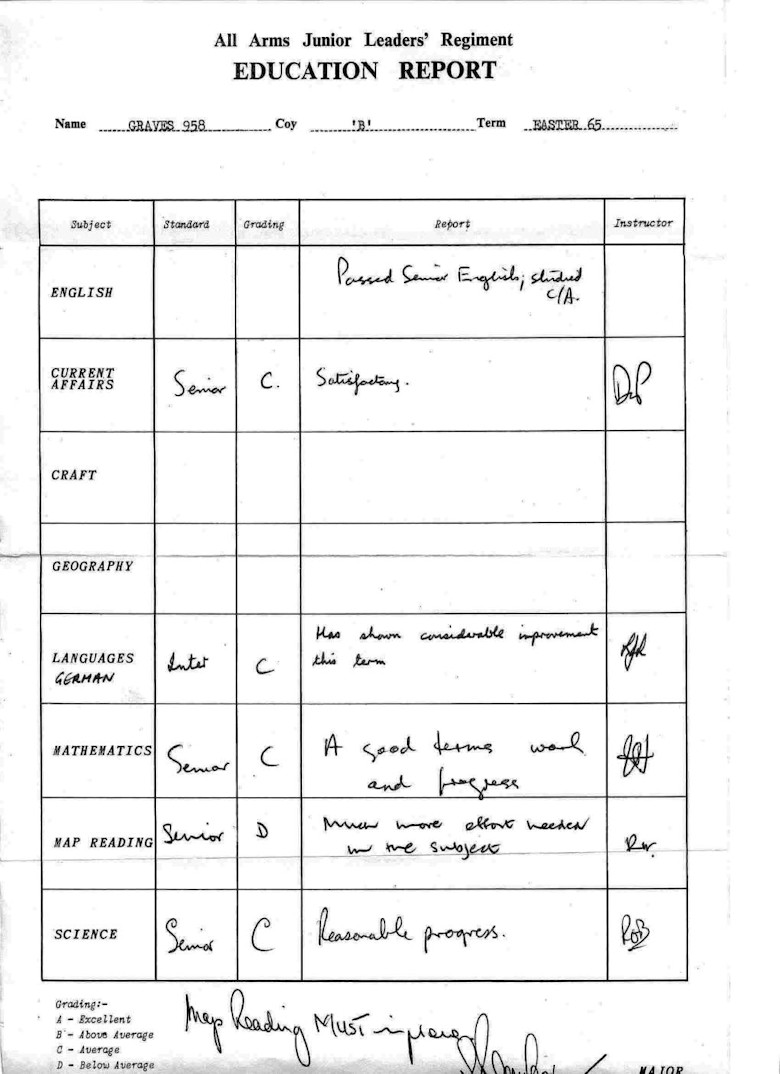 All Arms Junior Leaders' Regiment
EDUCATION REPORT
Name GRAVES 958 Coy 'B' Term EASTER 65
Subject Standard Grading Report Instructor
ENGLISH Passed Senior English; studied
C/A.
CURRENT
AFFAIRS Senior C. Satisfactory.
CRAFT
GEOGRAPHY
LANGUAGES
GERMAN Inter C Has shown considerable improvement
this term
MATHEMATICS Senior C A good terms work
and progress
MAP READING Senior D Much more effort needed
in the subject
SCIENCE Senior C Reasonable progress. ROB
Grading:-
A - Excellent
B - Above Average
C - Average
D - Below Average
Map Reading MUST improve
MAJOR